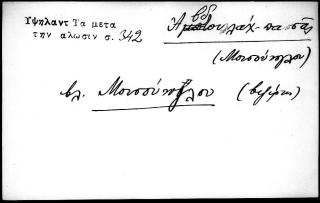 Υψηλαντ Τα μετα
την αλωσιν σ. 342
Ἀβδουλάχ-πασᾶς
(Μουσούνογλου)
βλ. Μουσούνογλου (βεζίρης)